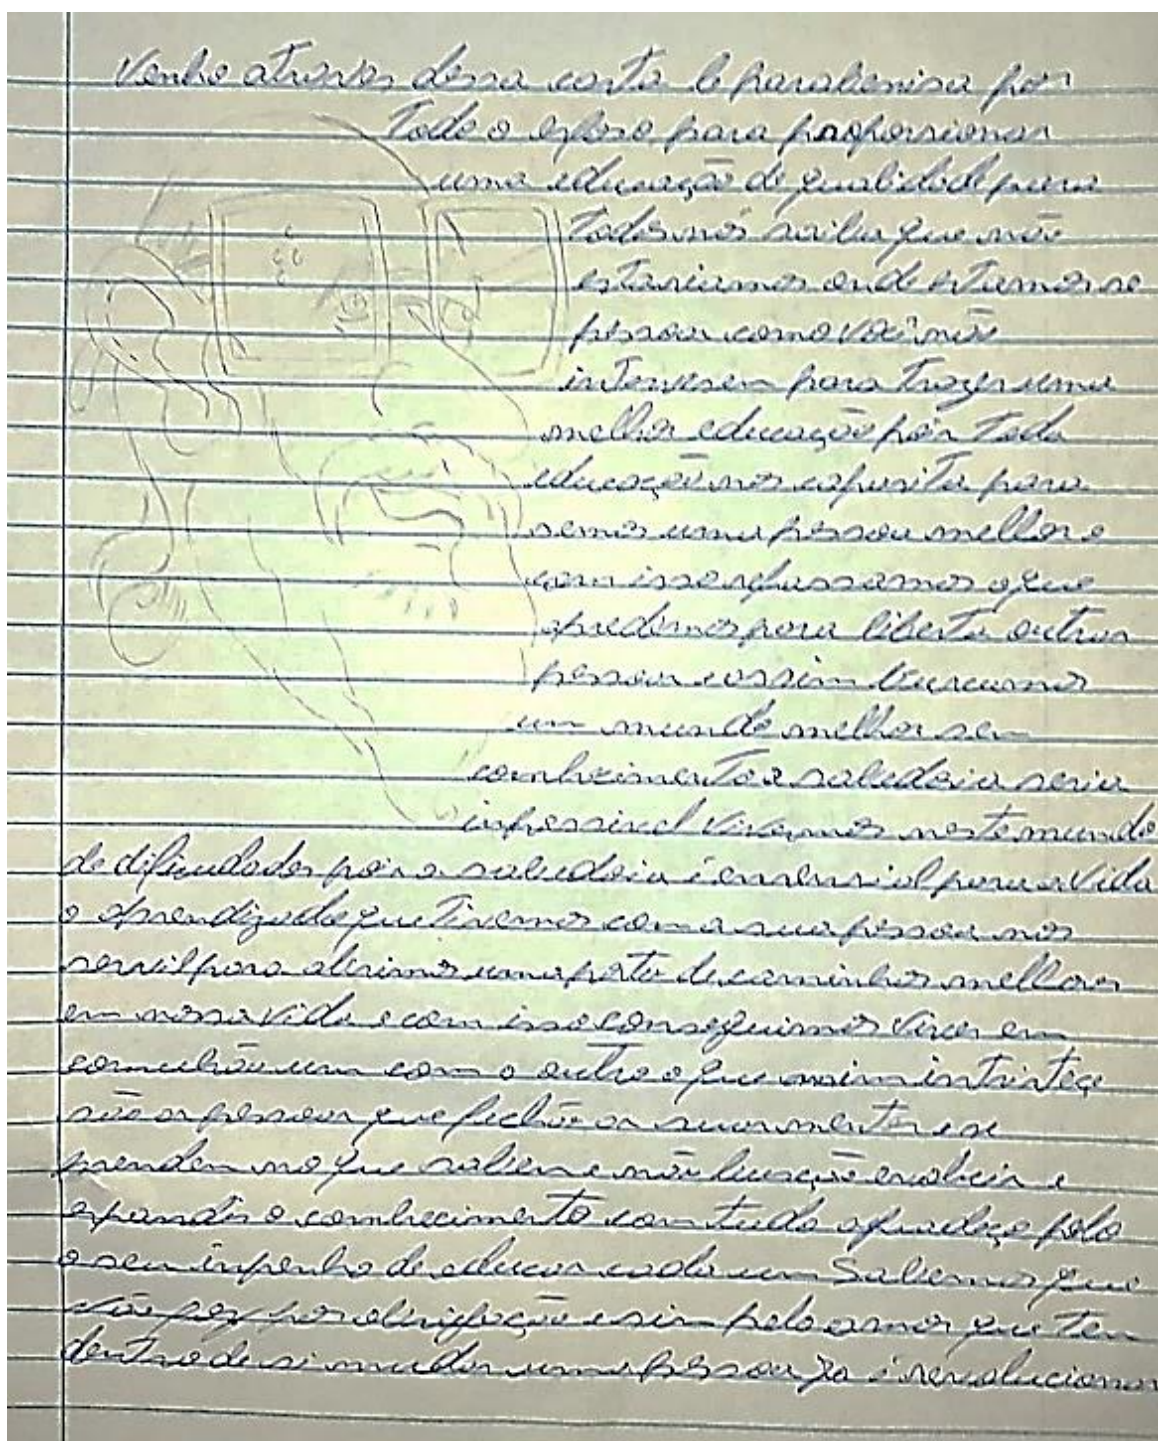 Venho atraves dessa carta le parabenisa por
todo o esfoso para proporsionar
uma educação de qualidade para
todos nós saiba que não
estariamos onde estamos se
pessoas como você não
intervesem para trazer uma
melhor educação pois toda
educação nos capasita para
sermos uma pessoa melhor e
com isso repassamos o que
apredemos para liberta outras
pessoas e assim buscamos
um mundo melhor sem
comhecimento e sabedoia seria
impossivel vivermos neste mundo
de dificudades pois a sabedoia é essensial para a vida
o aprendizado que tivemos com a sua pessoa nos
servil para abrimos uma porta de caminhos melhores
em nossa vida e com isso conseguimos viver em
comuhão um com o outro o que mim intristeçe
são as pessoas que fechão as suas mentes e se
prendem no que sabem e não buscão evoluir e
expandir o comhecimento com tudo agradeço pelo
o seu inpenho de educar cada um Sabemos que
não fez por obrigação e sim pelo amor que tem
dentro de si mudar uma pessoa ja é revolucionar